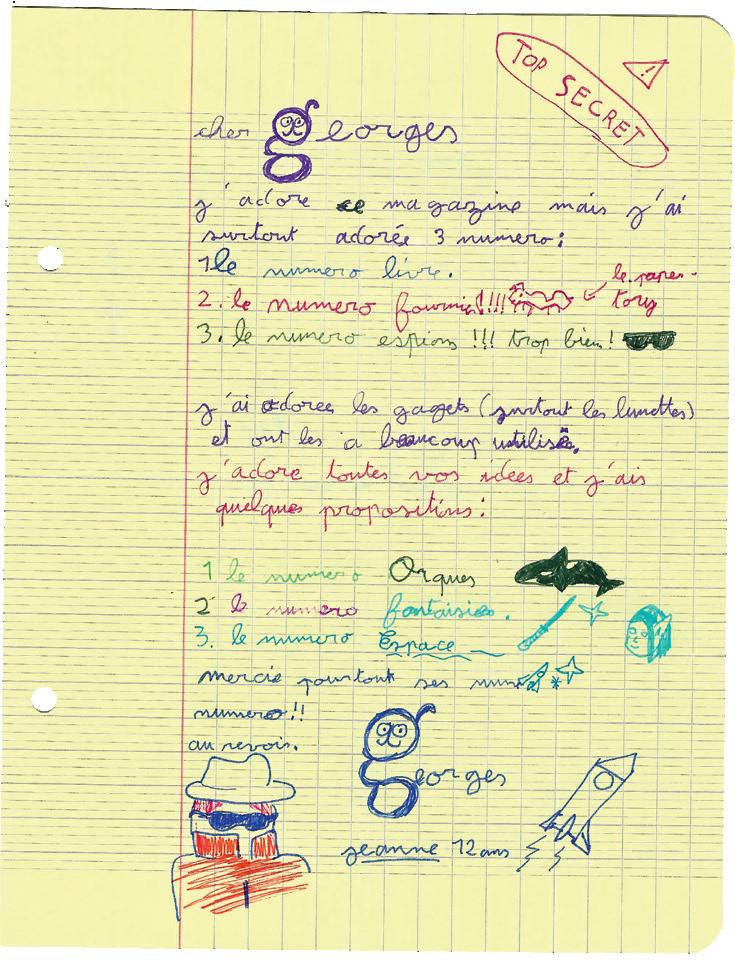 TOP SECRET
!
cher georges
j'adore ce magazine mais j'ai
surtout adorée 3 numero:
1 le numero livre.
2. le numero fourmis!!!!
le paper-
toug
3. le numero espions !!! trop bien!
j'ai adorée les gagets (surtout les lunettes)
et ont les a beaucoup utilisés.
j'adore toutes vos idées et j'ais
quelques propositins:
1 le numero Orques
2 le numero fantaisies.
3. le numero Espace
mercie pourtout ses num
numero!!
au revoir.
georges
jeanne 12 ans